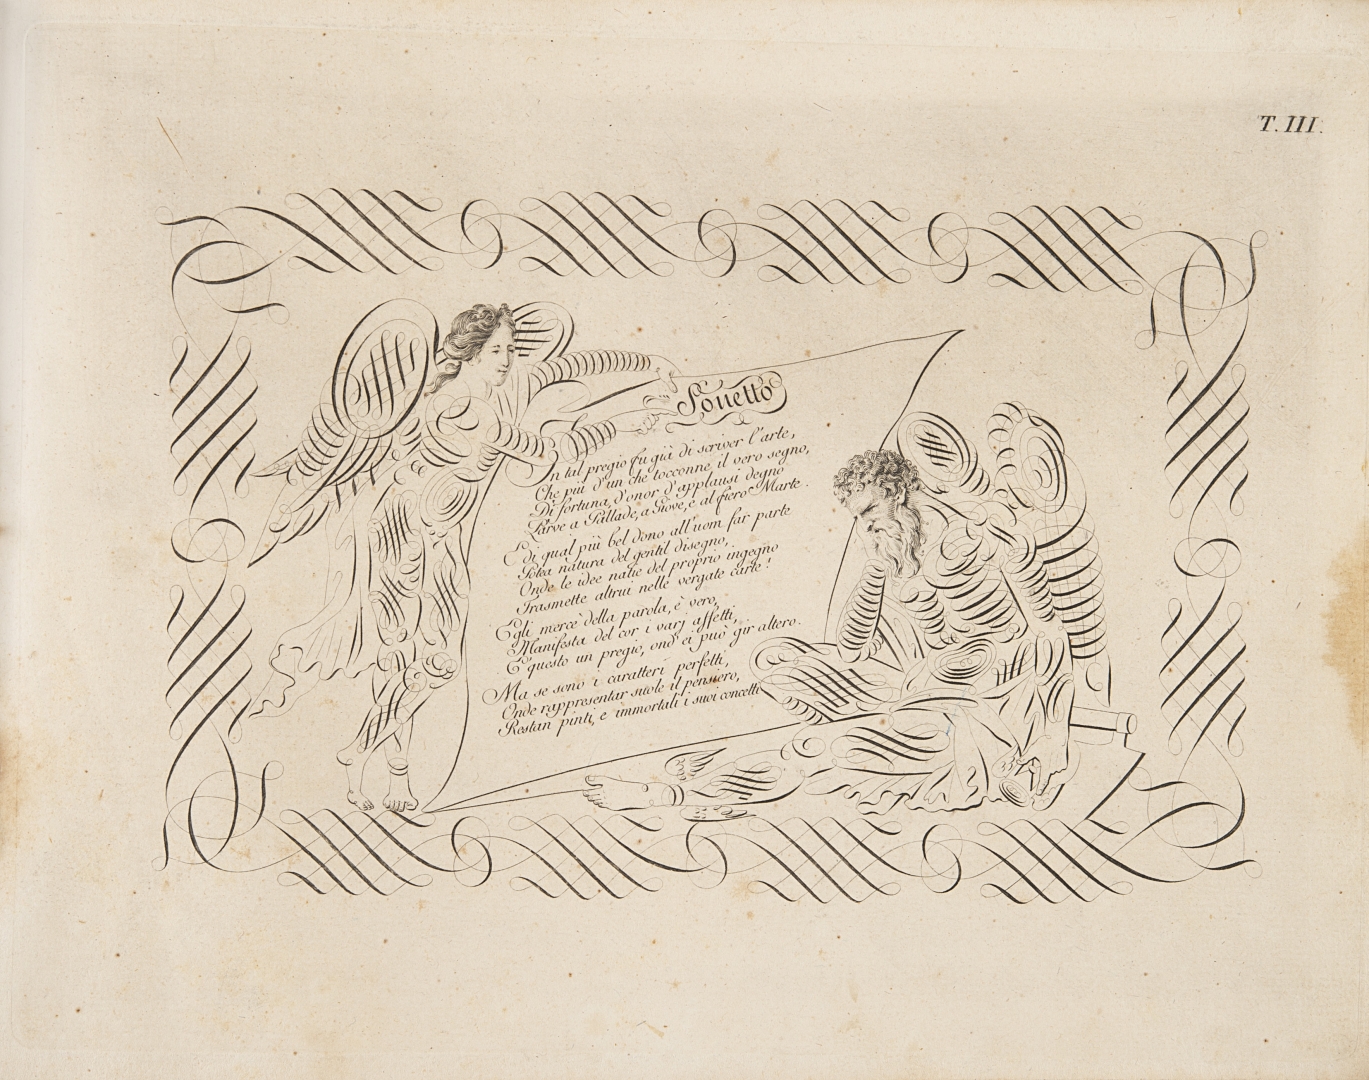 T. III.
Sonetto
In tal pregio fu già di scriver l'arte,
Che più d'un che tocconne il vero segno,
Di fortuna, d'onor d'applausi degno
Parve a Pallade, a Giove, e al fiero Marte.
E di qual più bel dono all'uom far parte
Potea natura del gentil disegno,
Onde le idee natie del proprio ingegno
Trasmette altrui nelle vergate carte!
Egli mercè della parola, è vero,
Manifesta del cor i varj affetti,
E questo un pregio, ond' ei può gir altero.
Ma se sono i caratteri perfetti,
Onde rappresentar suole il pensiero,
Restan pinti, e immortali i suoi concetti